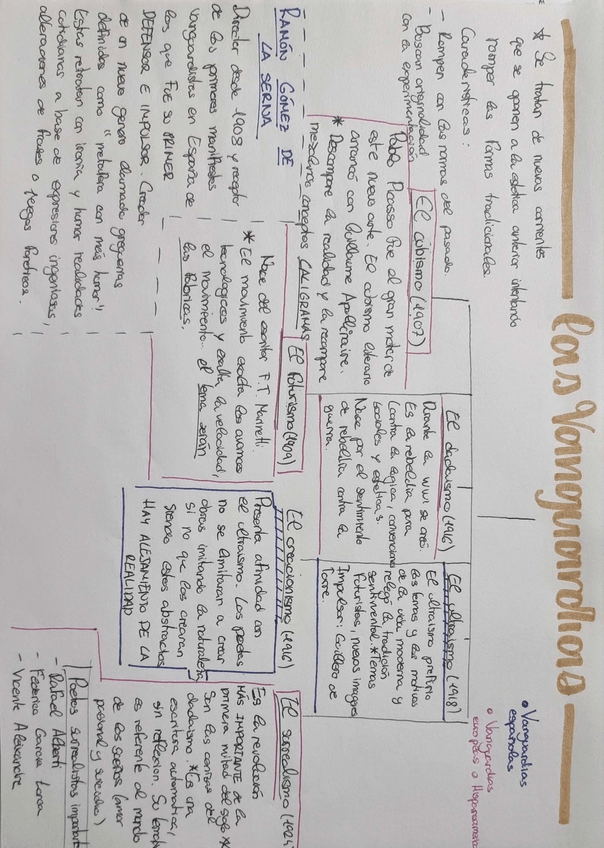 Las Vanguardias
* Se tratan de nuevas corrientes
que se oponen a la estética anterior intentando
romper las formas tradicionales.
Características:
- Rompen con las normas del pasado
- Buscan originalidad
con la experimentación
• Vanguardias
españolas
• Vanguardias
europeas o Hispanoamer
El cubismo (1907)
Pablo Picasso fue el gran motor de
este nuevo arte. El cubismo literario
arrancó con Guillaume Apollinaire.
* Descompone la realidad y la recompone
mezclando conceptos CALIGRAMAS
El dadaísmo (1916)
Durante la WWI se creó
Es la rebeldía pura
(contra la lógica, convenciones
sociales y estéticas
Nace por el sentimiento
de rebeldía contra la
guerra.
El ultraísmo (1918)
El ultraísmo prefirió
los temas y los motivos
de la vida moderna y
relegó la tradición
sentimental * Temas
futuristas, nuevas imágenes
Impulsor: Guillermo de
Torre.
El futurismo (1909)
Nace del escritor F.T. Marinetti.
* El movimiento exalta los avances
tecnológicos y exalta la velocidad,
el movimiento... el tema serán
las fábricas.
El creacionismo (1916)
Presenta afinidad con
el ultraísmo. Los poetas
no se limitaran a crear
obras imitando la naturaleza
si no que las crearan
siendo estas abstractas
HAY ALEJAMIENTO DE LA
REALIDAD
El surrealismo (1924
Es la revolución
MÁS IMPORTANTE DE LA
primera mitad del siglo XX
Son las cenizas del
dadaísmo * Es una
escritura automática,
sin reflexión. Su temática
es referente al mundo
de los sueños (amor
pasional y suicidio)
Poetas surrealistas importantes
- Rafael Alberti
- Federico García Lorca
- Vicente Aleixandre
RAMÓN GÓMEZ DE
LA SERNA
Director desde 1908 y receptor
de los primeros manifiestos
vanguardistas en España de
los que fue su PRIMER
DEFENSOR E IMPULSOR. Creador
de un nuevo género llamado greguerías
definidas como "metáfora con más humor".
Estas retratan con ironía y humor realidades
cotidianas a base de expresiones ingeniosas,
alteraciones de frases o juegos fonéticos